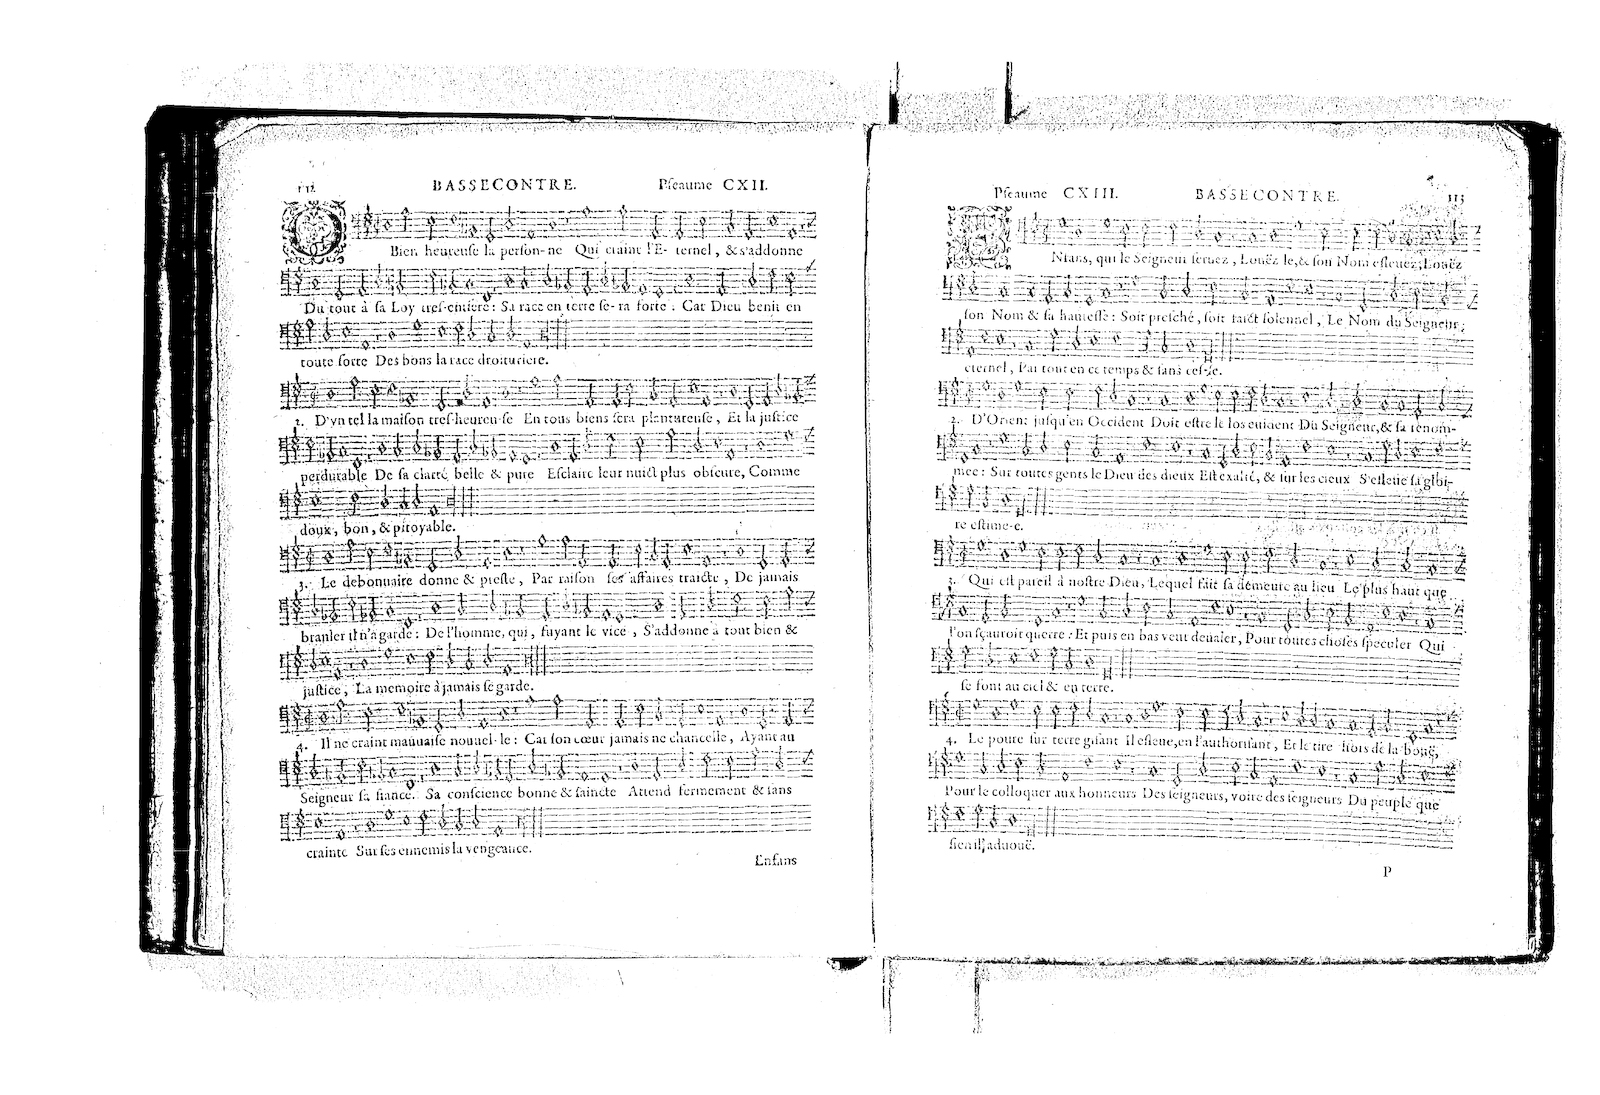 112 BASSECONTRE. Pſeaume CXII.
O
Bien heureuſe la perſon-ne Qui craint l'E- ternel, & s'addonne
Du tout à ſa Loy treſ-entiere: Sa race en terre ſe-ra forte: Car Dieu benit en
toute ſorte Des bons la race droituriere.
2. D'vn tel la maiſon treſ-heureu-ſe En tous biens ſera plantureuſe, Et ſa juſtice
perdurable De ſa clarté belle & pure Eſclaire leur nuict plus obſcure, Comme
doux, bon, & pitoyable.
3. Le debonnaire donne & preſte, Par raiſon ſes affaires traicte, De jamais
branler il n'a garde: De l'homme, qui, fuyant le vice, S'addonne à tout bien &
juſtice, La memoire à jamais ſe garde.
4. Il ne craint mauuaiſe nouuel-le: Car ſon cœur jamais ne chancelle, Ayant au
Seigneur ſa fiance. Sa conſcience bonne & ſaincte Attend fermement & ſans
crainte Sur ſes ennemis la vengeance.
Enfans
Pſeaume CXIII. BASSECONTRE. 113
Nfans, qui le Seigneur ſeruez, Louëz le, & ſon Nom eſleuez; Louëz
ſon Nom & ſa hauteſſe: Soit preſché, ſoit faict ſolennel, Le Nom du Seigneur,
eternel, Par tout en ce temps & ſans ceſ-ſe.
2. D'Orient juſqu'en Occident Doit eſtre le los euident Du Seigneur, & ſa renom-
mee: Sur toutes gents le Dieu des dieux Eſt exalté, & ſur les cieux S'eſleue ſa gloi-
re eſtime-e.
3. Qui eſt pareil à noſtre Dieu, Lequel fait ſa demeure au lieu Le plus haut que
l'on ſçauroit querre: Et puis en bas veut deualer, Pour toutes choſes ſpeculer Qui
ſe font au ciel & en terre.
4. Le poure ſur terre giſant Il eſleue, en l'authoriſant, Et le tire hors de la bouë,
Pour le colloquer aux honneurs Des ſeigneurs, voire des ſeigneurs Du peuple que
ſien il aduouë.
P